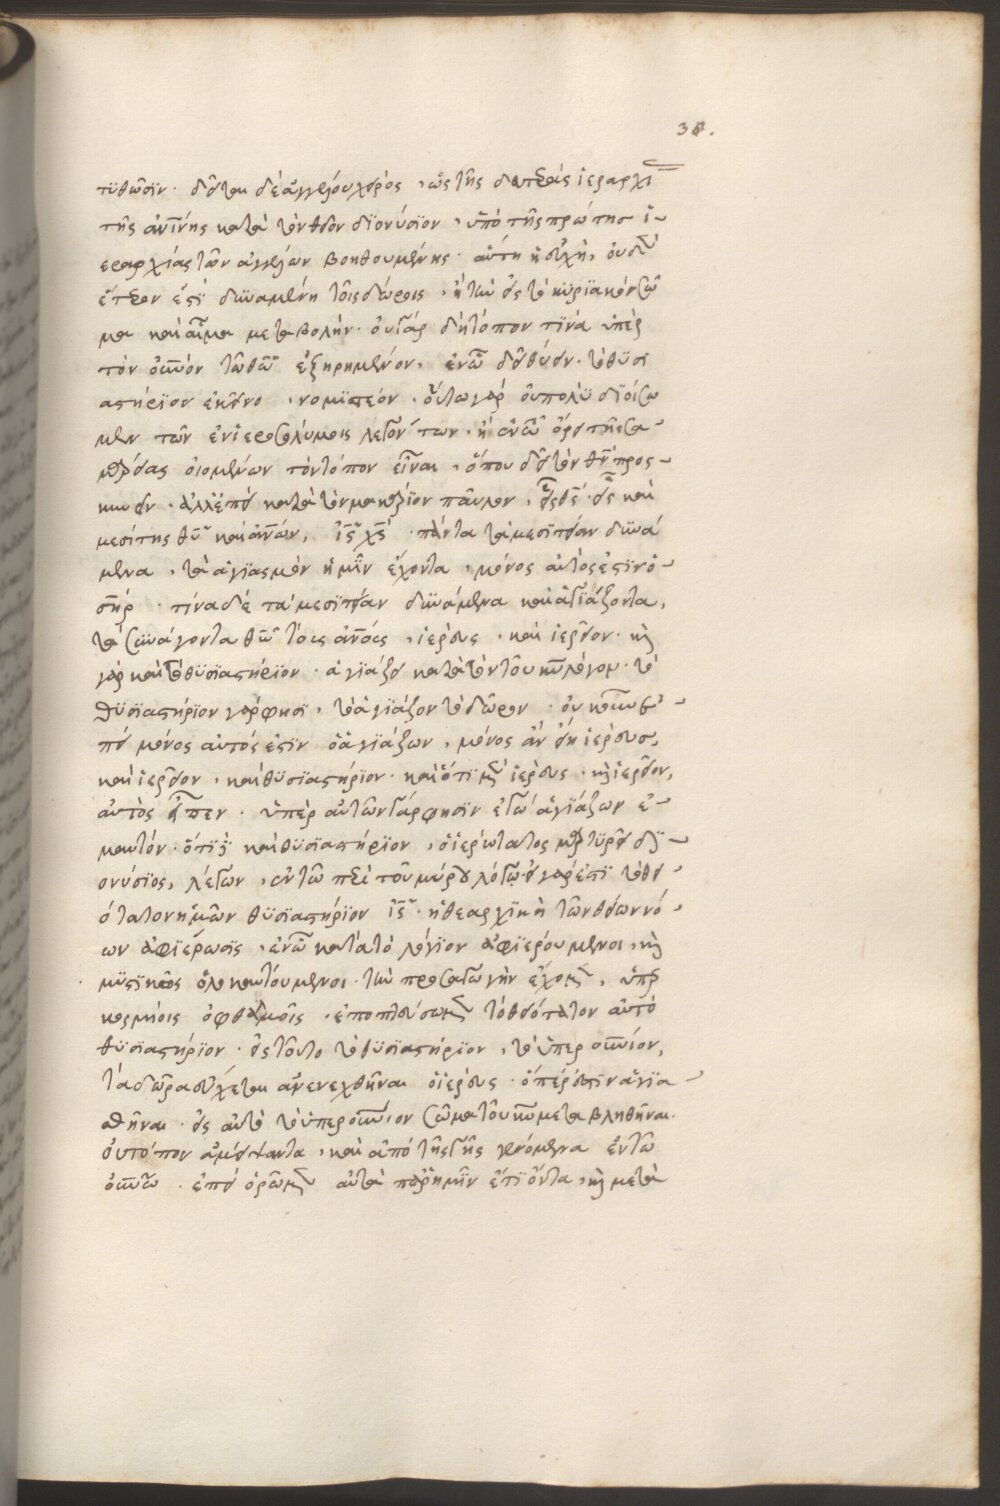 30.
τϊθῶσϊν. δεῖται δὲ ἀγγέλου χειρὸς, ὡς τῆς δευτέρας ἱεραρχί
τῆς ἀνΐνης κατὰ τὸν θεῖον διονύσϊον, ὑπὸ τῆς πρώτης ἱ-
εραρχίας τῶν ἀγγέλων βοηθουμένης. αὕτη ἡ εὐχὴ, οὐδὲν
ἕτερον ἐστὶ δυναμένη τοῖς δώροις, ἢ τὴν εἰς τὸ κυρϊακὸν σῶ
μα καὶ αἷμα μεταβολήν. οὐ γάρ δὴ τόπον τϊνὰ ὑπὲρ
τὸν οὐνὸν τῶ θεῶ ἐξηρημένον, ἐν ὧ δεῖ θύειν. τὸ θυσϊ
αστήρϊον ἐκεῖνο, νομϊστέον. οὕτω γὰρ οὐ πολὺ διοίσο
μεν τῶν ἐν ἱεροσολύμοις λεγόντων. ἢ ἐν τῶ ὄρει τῆς σα-
μαρείας οἰομένων τὸν τόπον εἶναι, ὅπου δεῖ τὸν θν προσ-
κυνεῖν. ἀλλ' ἐπεὶ κατὰ τὸν μακάριον παῦλον, εἷς θς. εἷς καὶ
μεσίτης θυ καὶ ἀνων, ις χς. πάντα τὰ μεσϊτείαν δυνά
μενα, τὰ ἁγϊασμὸν ἡμῖν ἔχοντα, μόνος αὐτὸς ἐστϊν ὁ-
σηρ. τίνα δέ τα μεσϊτείαν δυνάμενα καὶ ἁγϊάζοντα,
τὰ συνάγοντα θω τοῖς ἀνοις, ἱερεὺς, καὶ ἱερεῖον. καὶ
γὰρ καὶ τὸ θυσϊαστήρϊον. ἁγϊάζει κατὰ τὸν τοῦ κυ λόγον. τὸ
θυσϊαστήρϊον γάρ φησϊ, τὸ ἁγϊάζον τὸ δῶρον. οὐκοῦν ἐ-
πεὶ μόνος αὐτός ἐστϊν ὁ ἁγϊάζων, μόνος ἂν εἴη ἱερεὺς,
καὶ ἱερεῖον, καὶ θυσϊαστήρϊον. καὶ ὅτϊ μὲν ἱερεὺς, καὶ ἱερεῖον,
αὐτὸς εἶπεν. ὑπὲρ αὐτῶν γάρ φησϊν ἐγὼ ἁγϊάζων ἐ-
μαυτόν. ὅτϊ δὲ καὶ θυσϊαστήρϊον, ὁ ἱερώτατος μαρτυρεῖ δϊ-
ονύσϊος, λέγων, ἐν τῶ περὶ τοῦ μύρου λόγω. εἰ γάρ ἐστϊ τὸ θει
ότατον ἡμῶν θυσϊαστήρϊον ις. ἡ θεαρχϊκὴ τῶν θείων νό-
ων ἀφϊέρωσϊς, ἐν ὧ κατὰ τὸ λόγϊον ἀφϊερούμενοι, καὶ
μϋστϊκῶς ὁλοκαυτούμενοι. τὴν προσαγωγὴν ἔχομεν, ὑπερ
κοσμίοις ὀφθαλμοῖς. ἐποπτεύσωμεν τὸ θειότατον αὐτὸ
θυσϊαστήρϊον. εἰς τοῦτο τὸ θυσϊαστήρϊον, τὸ ὑπερουνίον,
τὰ δῶρα εὔχεται ἀνενεχθῆναι ὁ ἱερεὺς. ὅπέρ ἐστϊν ἁγϊα
σθῆναι. εἰς αὐτὸ τὸ ὑπερούνιον σῶμα τοῦ κυ μεταβληθῆναι.
οὐ τόπον ἀμείψαντα, καὶ ἀπὸ τῆς γῆς γενόμενα ἐν τῶ
οὐνῶ. ἐπεὶ ὁρῶμεν αὐτὰ παρ' ἡμῖν ἔτϊ ὄντα, καὶ μετὰ